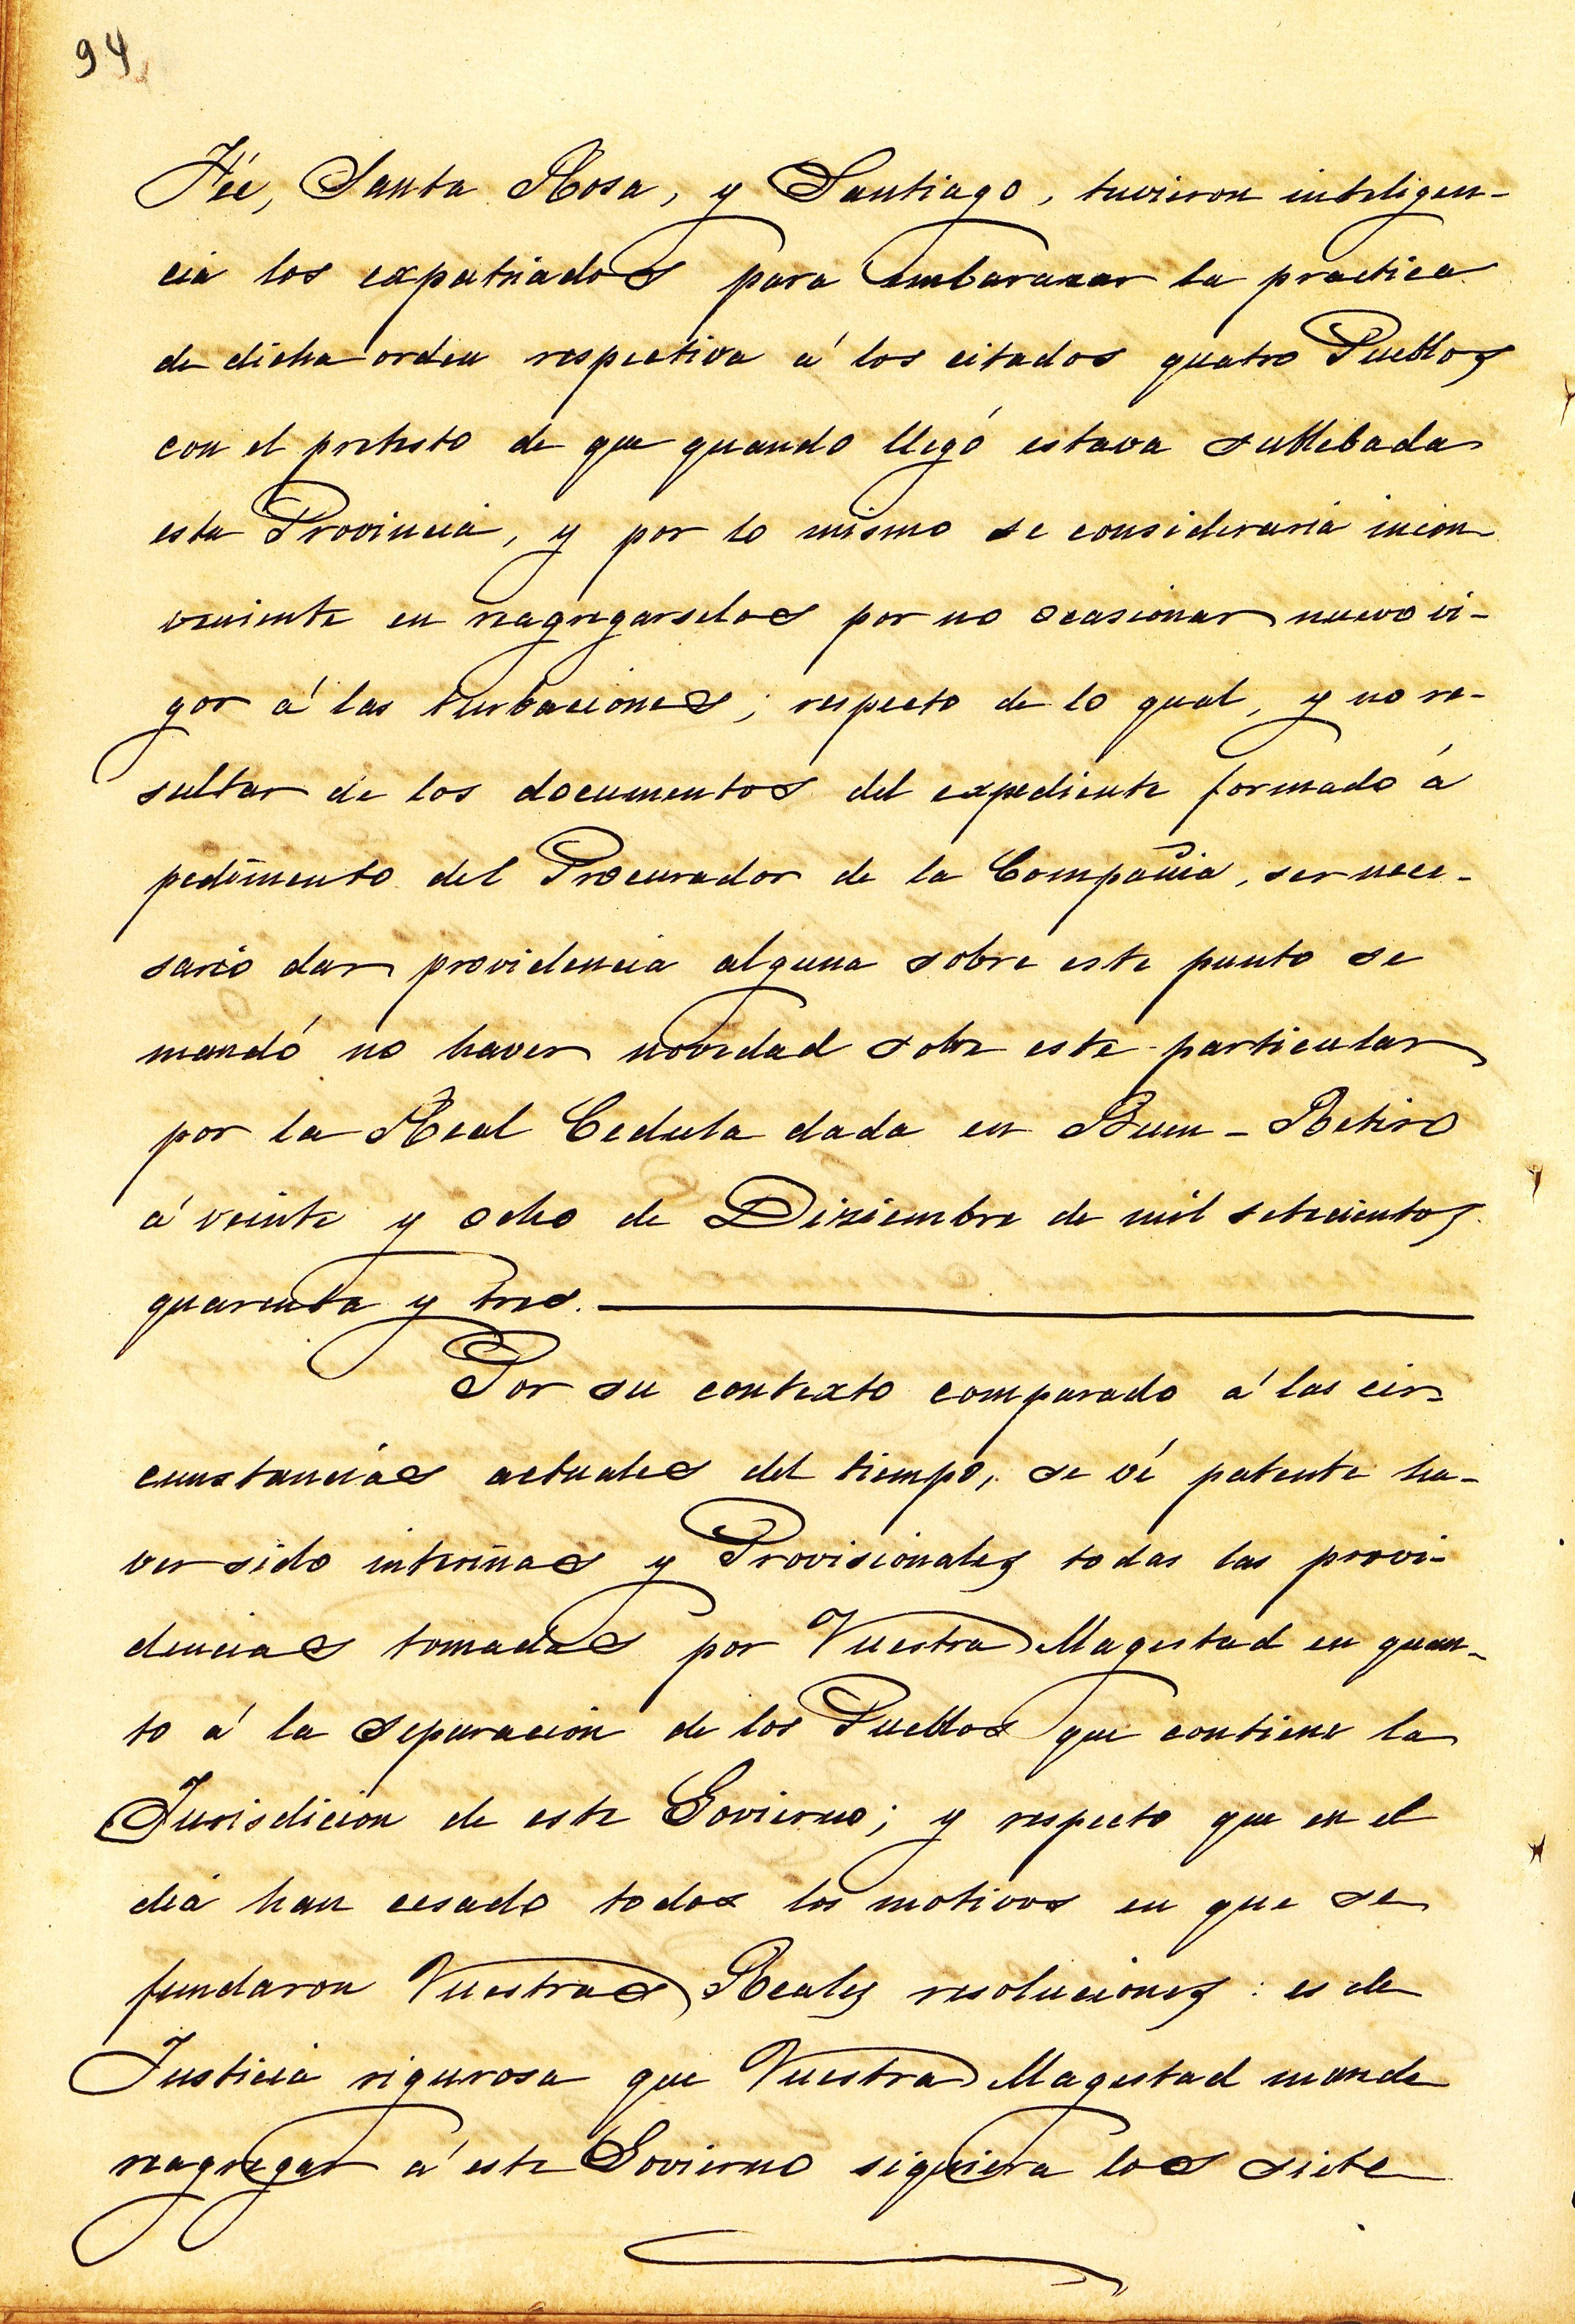 94
Fée, Santa Rosa, y Santiago, tuvieron inteligen-
cia los expatriados para embarazar la practica
de dicha orden respectiva á los citados quatro Pueblos
con el pretesto de que quando llegó estava sublebada
esta Provincia, y por lo mismo se consideraria incon-
veniente en reagregarselos por no ocasionar nuevo vi-
gor á las turbaciones; respecto de lo qual, y no re-
sultar de los documentos del expediente formado á
pedimento del Procurador de la Compañia, ser nece-
sario dar providencia alguna sobre este punto se
mandó no haver novedad sobre este particular
por la Real Cedula dada en Buen-Retiro
á veinte y ocho de Diziembre de mil setecientos
quarenta y tres.
Por su contexto comparado á las cir-
cunstancias actuales del tiempo, se vé patente ha-
ver sido interinas y Provisionales todas las provi-
dencias tomadas por Vuestra Magestad en quan-
to á la separacion de los Pueblos que contiene la
Jurisdicion de este Govierno; y respecto que en el
dia han cesado todos los motivos en que se
fundaron Vuestras Reales resoluciones: es de
Justicia rigurosa que Vuestra Magestad mande
reagregar á este Govierno siquiera los siete